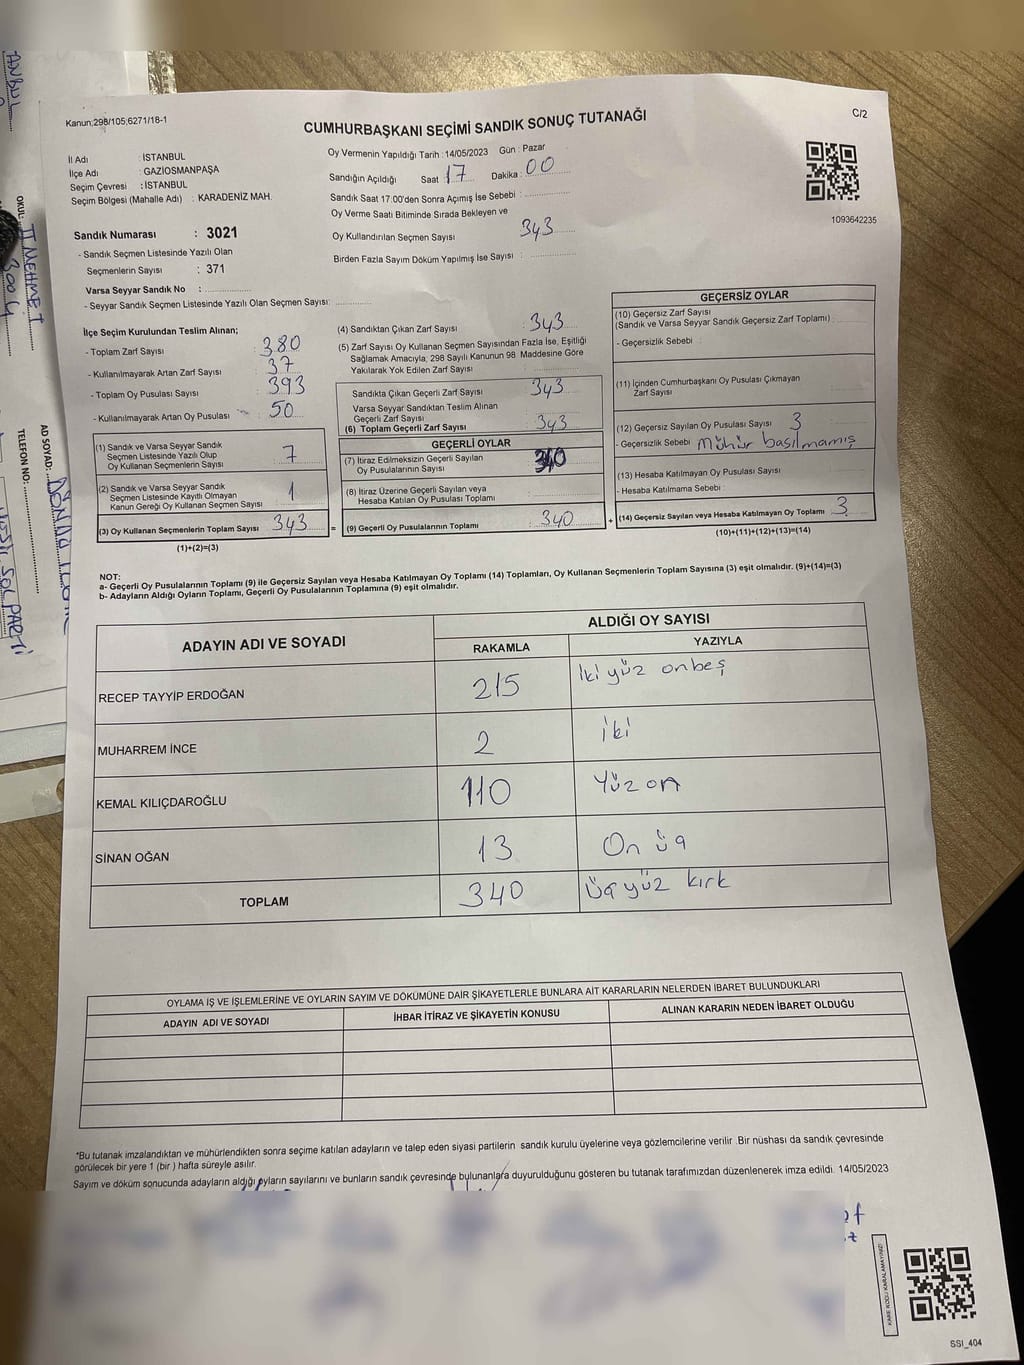 ANBUL
OKUL: II MEHMET
3004
AD SOYAD:
TELEFON NO:
SOL PARTİ
Kanun;298/105;6271/18-1
C/2
CUMHURBAŞKANI SEÇİMİ SANDIK SONUÇ TUTANAĞI
İl Adı : İSTANBUL
İlçe Adı : GAZİOSMANPAŞA
Seçim Çevresi : İSTANBUL
Seçim Bölgesi (Mahalle Adı) : KARADENİZ MAH.
Oy Vermenin Yapıldığı Tarih : 14/05/2023 Gün : Pazar
Sandığın Açıldığı Saat 17 Dakika : 00
Sandık Saat 17:00'den Sonra Açımış İse Sebebi :
Oy Verme Saati Bitiminde Sırada Bekleyen ve
Oy Kullandırılan Seçmen Sayısı 343
Birden Fazla Sayım Döküm Yapılmış İse Sayısı :
1093642235
Sandık Numarası : 3021
- Sandık Seçmen Listesinde Yazılı Olan
Seçmenlerin Sayısı : 371
Varsa Seyyar Sandık No :
- Seyyar Sandık Seçmen Listesinde Yazılı Olan Seçmen Sayısı:
İlçe Seçim Kurulundan Teslim Alınan;
- Toplam Zarf Sayısı 380
- Kullanılmayarak Artan Zarf Sayısı : 37
- Toplam Oy Pusulası Sayısı : 393
- Kullanılmayarak Artan Oy Pusulası : 50
(1) Sandık ve Varsa Seyyar Sandık
Seçmen Listesinde Yazılı Olup
Oy Kullanan Seçmenlerin Sayısı 7
(2) Sandık ve Varsa Seyyar Sandık
Seçmen Listesinde Kayıtlı Olmayan
Kanun Gereği Oy Kullanan Seçmen Sayısı 1
(3) Oy Kullanan Seçmenlerin Toplam Sayısı 343
(1)+(2)=(3)
(4) Sandıktan Çıkan Zarf Sayısı : 343
(5) Zarf Sayısı Oy Kullanan Seçmen Sayısından Fazla İse, Eşitliği
Sağlamak Amacıyla; 298 Sayılı Kanunun 98. Maddesine Göre
Yakılarak Yok Edilen Zarf Sayısı
Sandıkta Çıkan Geçerli Zarf Sayısı 343
Varsa Seyyar Sandıktan Teslim Alınan
Geçerli Zarf Sayısı
(6) Toplam Geçerli Zarf Sayısı 343
GEÇERLİ OYLAR
(7) İtiraz Edilmeksizin Geçerli Sayılan
Oy Pusulalarının Sayısı 340
(8) İtiraz Üzerine Geçerli Sayılan veya
Hesaba Katılan Oy Pusulası Toplamı
= (9) Geçerli Oy Pusulalarının Toplamı 340 +
GEÇERSİZ OYLAR
(10) Geçersiz Zarf Sayısı
(Sandık ve Varsa Seyyar Sandık Geçersiz Zarf Toplamı) :
- Geçersizlik Sebebi :
(11) İçinden Cumhurbaşkanı Oy Pusulası Çıkmayan
Zarf Sayısı
(12) Geçersiz Sayılan Oy Pusulası Sayısı 3
- Geçersizlik Sebebi : Mühür basılmamış
(13) Hesaba Katılmayan Oy Pusulası Sayısı
- Hesaba Katılmama Sebebi :
(14) Geçersiz Sayılan veya Hesaba Katılmayan Oy Toplamı 3
(10)+(11)+(12)+(13)=(14)
NOT:
a- Geçerli Oy Pusulalarının Toplamı (9) ile Geçersiz Sayılan veya Hesaba Katılmayan Oy Toplamı (14) Toplamları, Oy Kullanan Seçmenlerin Toplam Sayısına (3) eşit olmalıdır. (9)+(14)=(3)
b- Adayların Aldığı Oyların Toplamı, Geçerli Oy Pusulalarının Toplamına (9) eşit olmalıdır.
ADAYIN ADI VE SOYADI
ALDIĞI OY SAYISI
RAKAMLA YAZIYLA
RECEP TAYYİP ERDOĞAN 215 İki yüz onbeş
MUHARREM İNCE 2 iki
KEMAL KILIÇDAROĞLU 110 Yüz on
SİNAN OĞAN 13 On üç
TOPLAM 340 Üçyüz kırk
OYLAMA İŞ VE İŞLEMLERİNE VE OYLARIN SAYIM VE DÖKÜMÜNE DAİR ŞİKAYETLERLE BUNLARA AİT KARARLARIN NELERDEN İBARET BULUNDUKLARI
ADAYIN ADI VE SOYADI İHBAR İTİRAZ VE ŞİKAYETİN KONUSU ALINAN KARARIN NEDEN İBARET OLDUĞU
*Bu tutanak imzalandıktan ve mühürlendikten sonra seçime katılan adayların ve talep eden siyasi partilerin sandık kurulu üyelerine veya gözlemcilerine verilir .Bir nüshası da sandık çevresinde
görülecek bir yere 1 (bir ) hafta süreyle asılır.
Sayım ve döküm sonucunda adayların aldığı oyların sayılarını ve bunların sandık çevresinde bulunanlara duyurulduğunu gösteren bu tutanak tarafımızdan düzenlenerek imza edildi. 14/05/2023
KARE KODU KARALAMAYINIZ!
SSI_404